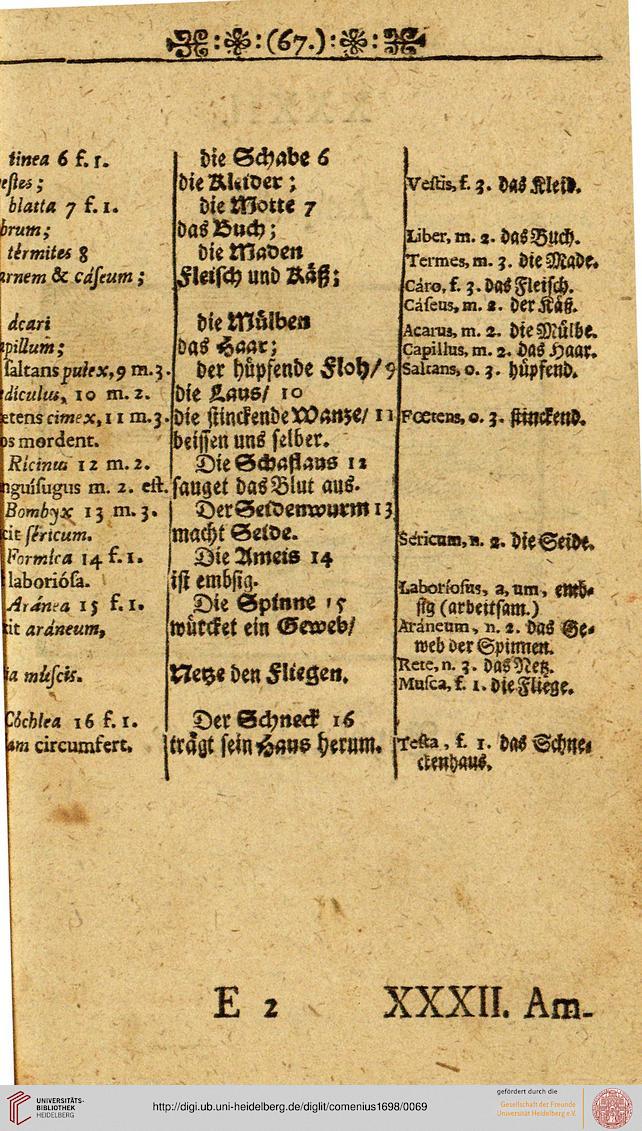 (67.)
tinea 6 f. 1.
estes;
blatta 7 f. 1.
brum;
térmites 8
arnem & cáseum;
acari
apillum;
saltans pulex, 9 m. 3.
diculus, 10 m. 2.
etens cimex, 11 m. 3.
os mordent.
Ricinus 12 m. 2.
nguisugus m. 2. est.
Bombyx 13 m. 3.
cit séricum.
Formica 14 f. 1.
laboriósa.
Aránea 15 f. 1.
xit aráneum,
ia múscis.
Cóchlea 16 f. 1.
am circumfert.
die Schabe 6
die Kleider;
die Motte 7
das Buch;
die Maden
Fleisch und Käß;
die Mülben
das Haar;
der hüpfende Floh/ 9
die Laus/ 10
die stinckende Wantze/ 11
beissen uns selber.
Die Schaflaus 12
sauget das Blut aus.
Der Seidenwurm 13
macht Seide.
Die Ameis 14
ist embsig.
Die Spinne 15
würcket ein Geweb/
Netze den Fliegen.
Der Schneck 16
trägt sein Haus herum.
Vestis, f. 3. das Kleid.
Liber, m. 2. das Buch.
Termes, m. 3. die Made.
Cáro, f. 3. das Fleisch.
Cáseus, m. 2. der Käß.
Acarus, m. 2. die Mülbe.
Capillus, m. 2. das Haar.
Saltans, o. 3. hüpfend.
Fœtens, o. 3. stinckend.
Séricum, n. 2. die Seide.
Laboriosus, a, um, emb-
sig (arbeitsam.)
Aráneum, n. 2. das Ge-
web der Spinnen.
Rete, n. 3. das Netz.
Musca, f. 1. die Fliege.
Testa, f. 1. das Schne-
ckenhaus.
E 2 XXXII. Am-
UNIVERSITÄTS-
BIBLIOTHEK
HEIDELBERG
http://digi.ub.uni-heidelberg.de/diglit/comenius1698/0069
gefördert durch die
Gesellschaft der Freunde
Universität Heidelberg e.V.